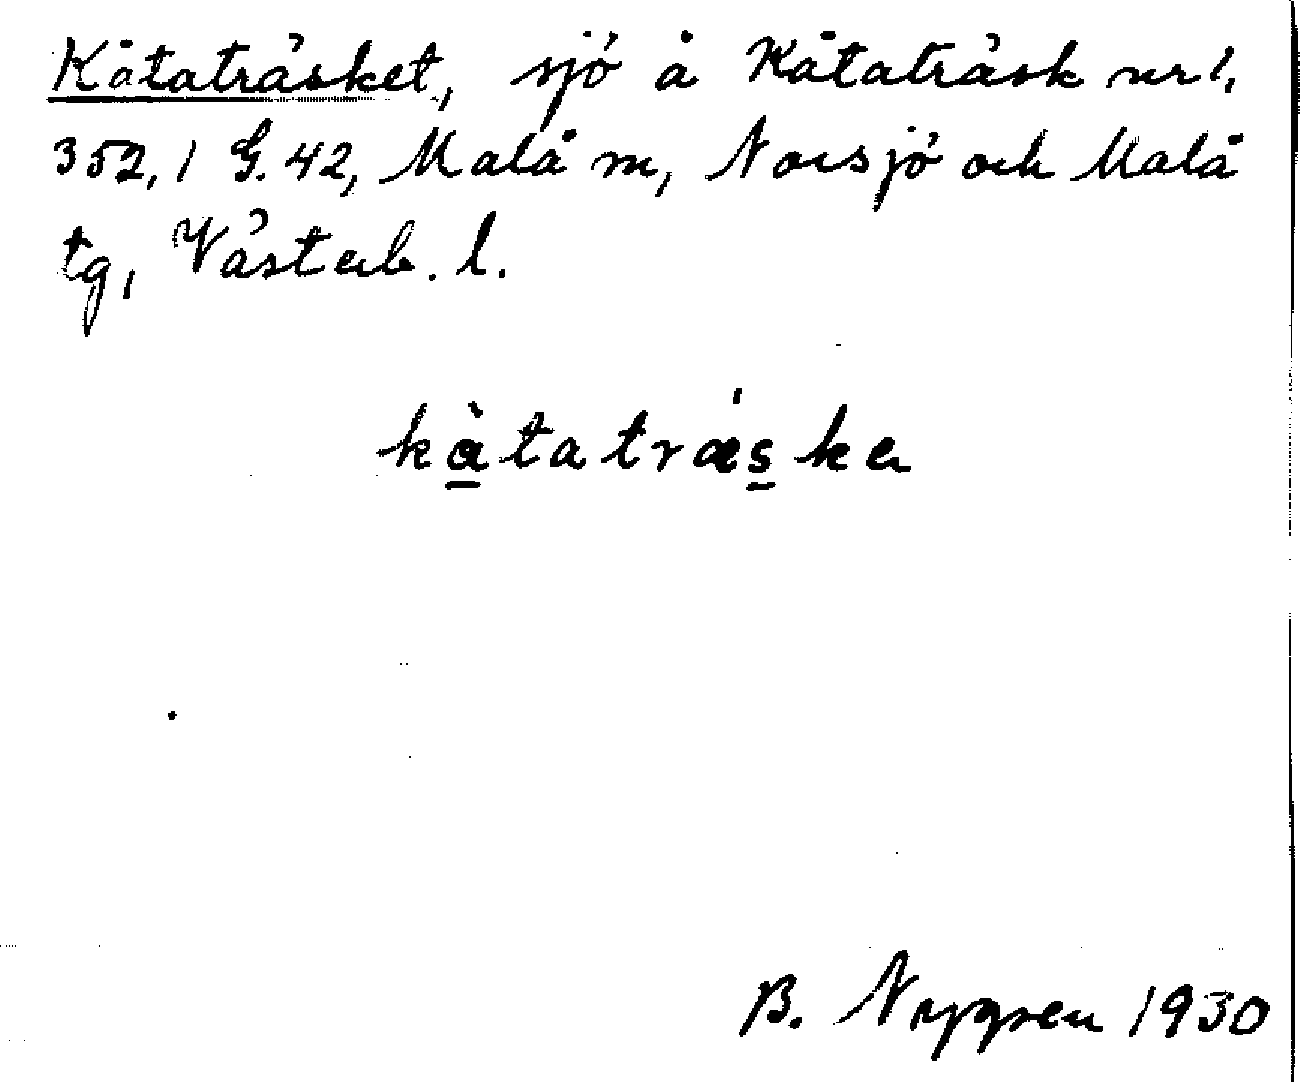 Kåtaträsket, sjö å Kåtaträsk nr 1,
352, 1 G. 42, Malå m, Norsjö och Malå
tg, Västerb. l.
kàtatrǽska
B. Nygren 1930